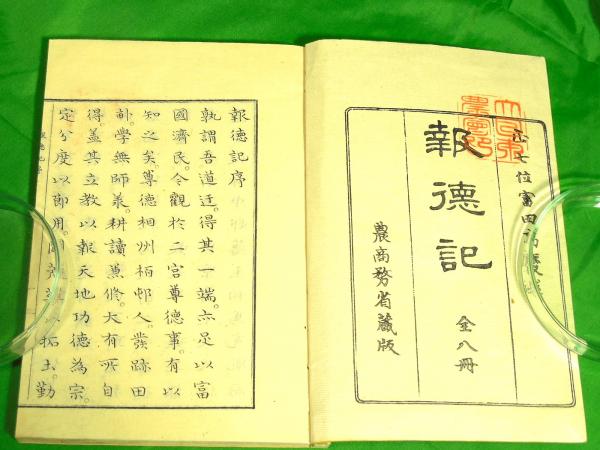 正七位富田高慶述
報德記
全八冊
農商務省藏版
報德記序
孰謂吾道迂。得其一端。亦足以富
國濟民。今觀於二宮尊德事。有以
知之矣。尊德相州栢邨人。發跡田
學無師承。耕讀兼修。大有所自
得。蓋其立教以報天地功德為宗。
定分度以節用。以拓土。勤